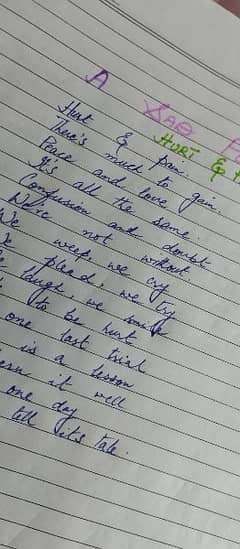 A SAD
HURT &
Hurt & pain.
There's much to gain.
Peace and love
It's all the same.
Confusion and doubt
We're not without.
We weep, we cry
plead, we try
laugh, we smile
to be hurt
one last trial
is a lesson
it well
one day
tell its tale.